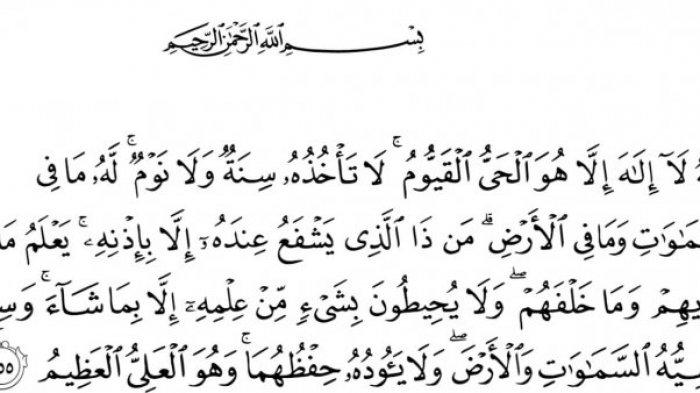 بِسْمِ اللَّهِ الرَّحْمَٰنِ الرَّحِيمِ
لَآ إِلَٰهَ إِلَّا هُوَ ٱلْحَىُّ ٱلْقَيُّومُ ۚ لَا تَأْخُذُهُۥ سِنَةٌ وَلَا نَوْمٌ ۚ لَّهُۥ مَا فِى
وَمَا فِى ٱلْأَرْضِ ۗ مَن ذَا ٱلَّذِى يَشْفَعُ عِندَهُۥٓ إِلَّا بِإِذْنِهِۦ ۚ يَعْلَمُ مَا
وَمَا خَلْفَهُمْ ۖ وَلَا يُحِيطُونَ بِشَىْءٍ مِّنْ عِلْمِهِۦٓ إِلَّا بِمَا شَآءَ ۚ
ٱلسَّمَٰوَٰتِ وَٱلْأَرْضَ ۖ وَلَا يَـُٔودُهُۥ حِفْظُهُمَا ۚ وَهُوَ ٱلْعَلِىُّ ٱلْعَظِيمُ